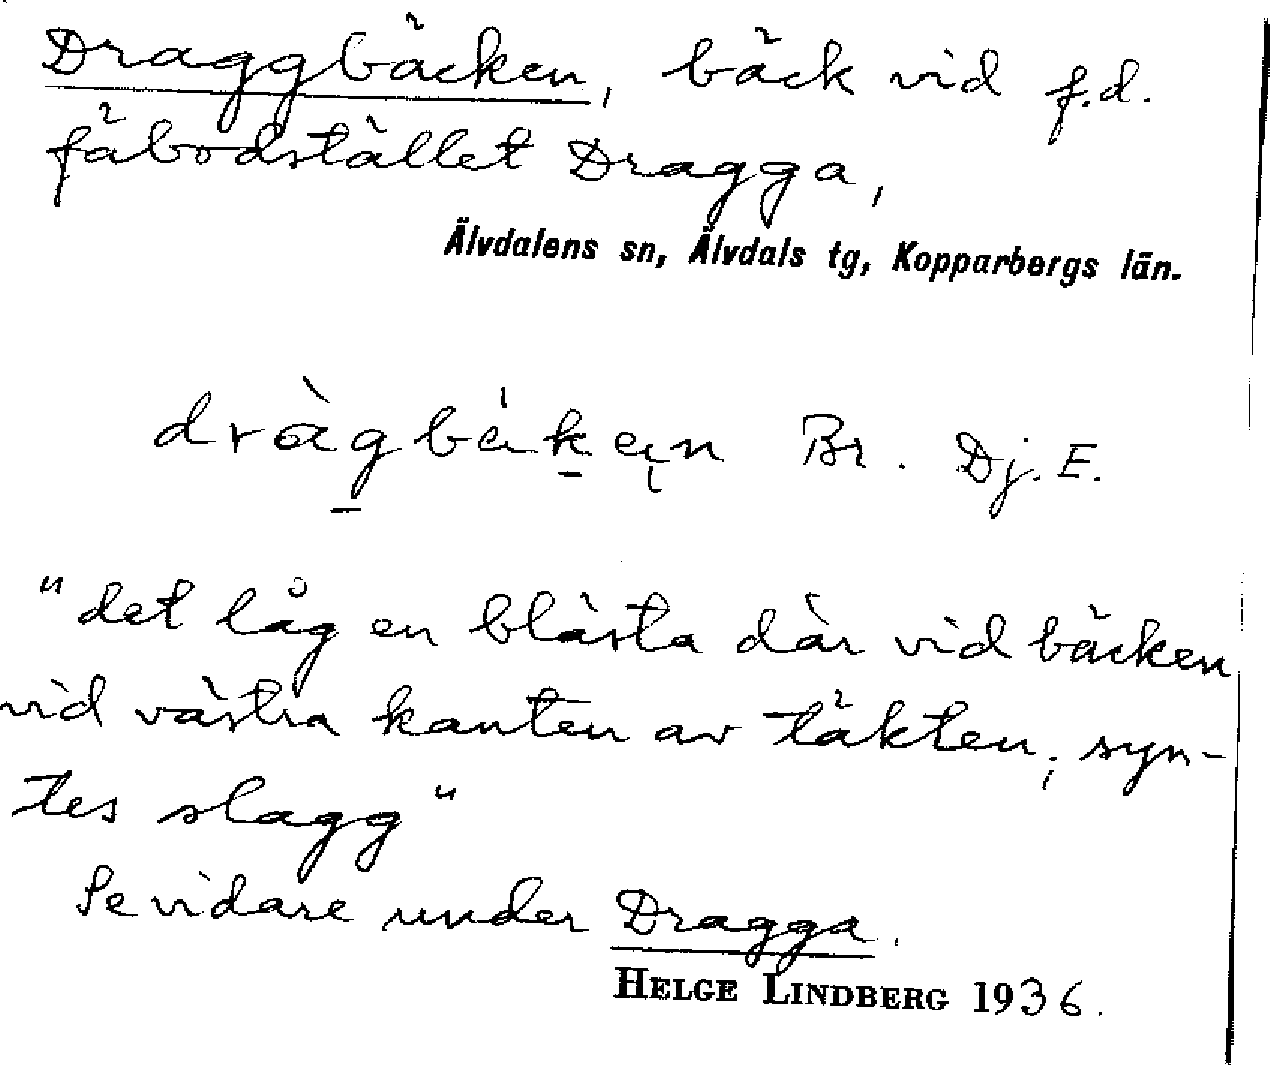 Draggbäcken, bäck vid f.d.
fäbodstället Dragga,
Älvdalens sn, Älvdals tg, Kopparbergs län.
Br. Dj. E.
"det låg en blästa där vid bäcken
vid västra kanten av täkten, syn-
tes slagg"
Se vidare under Dragga.
HELGE LINDBERG 1936.